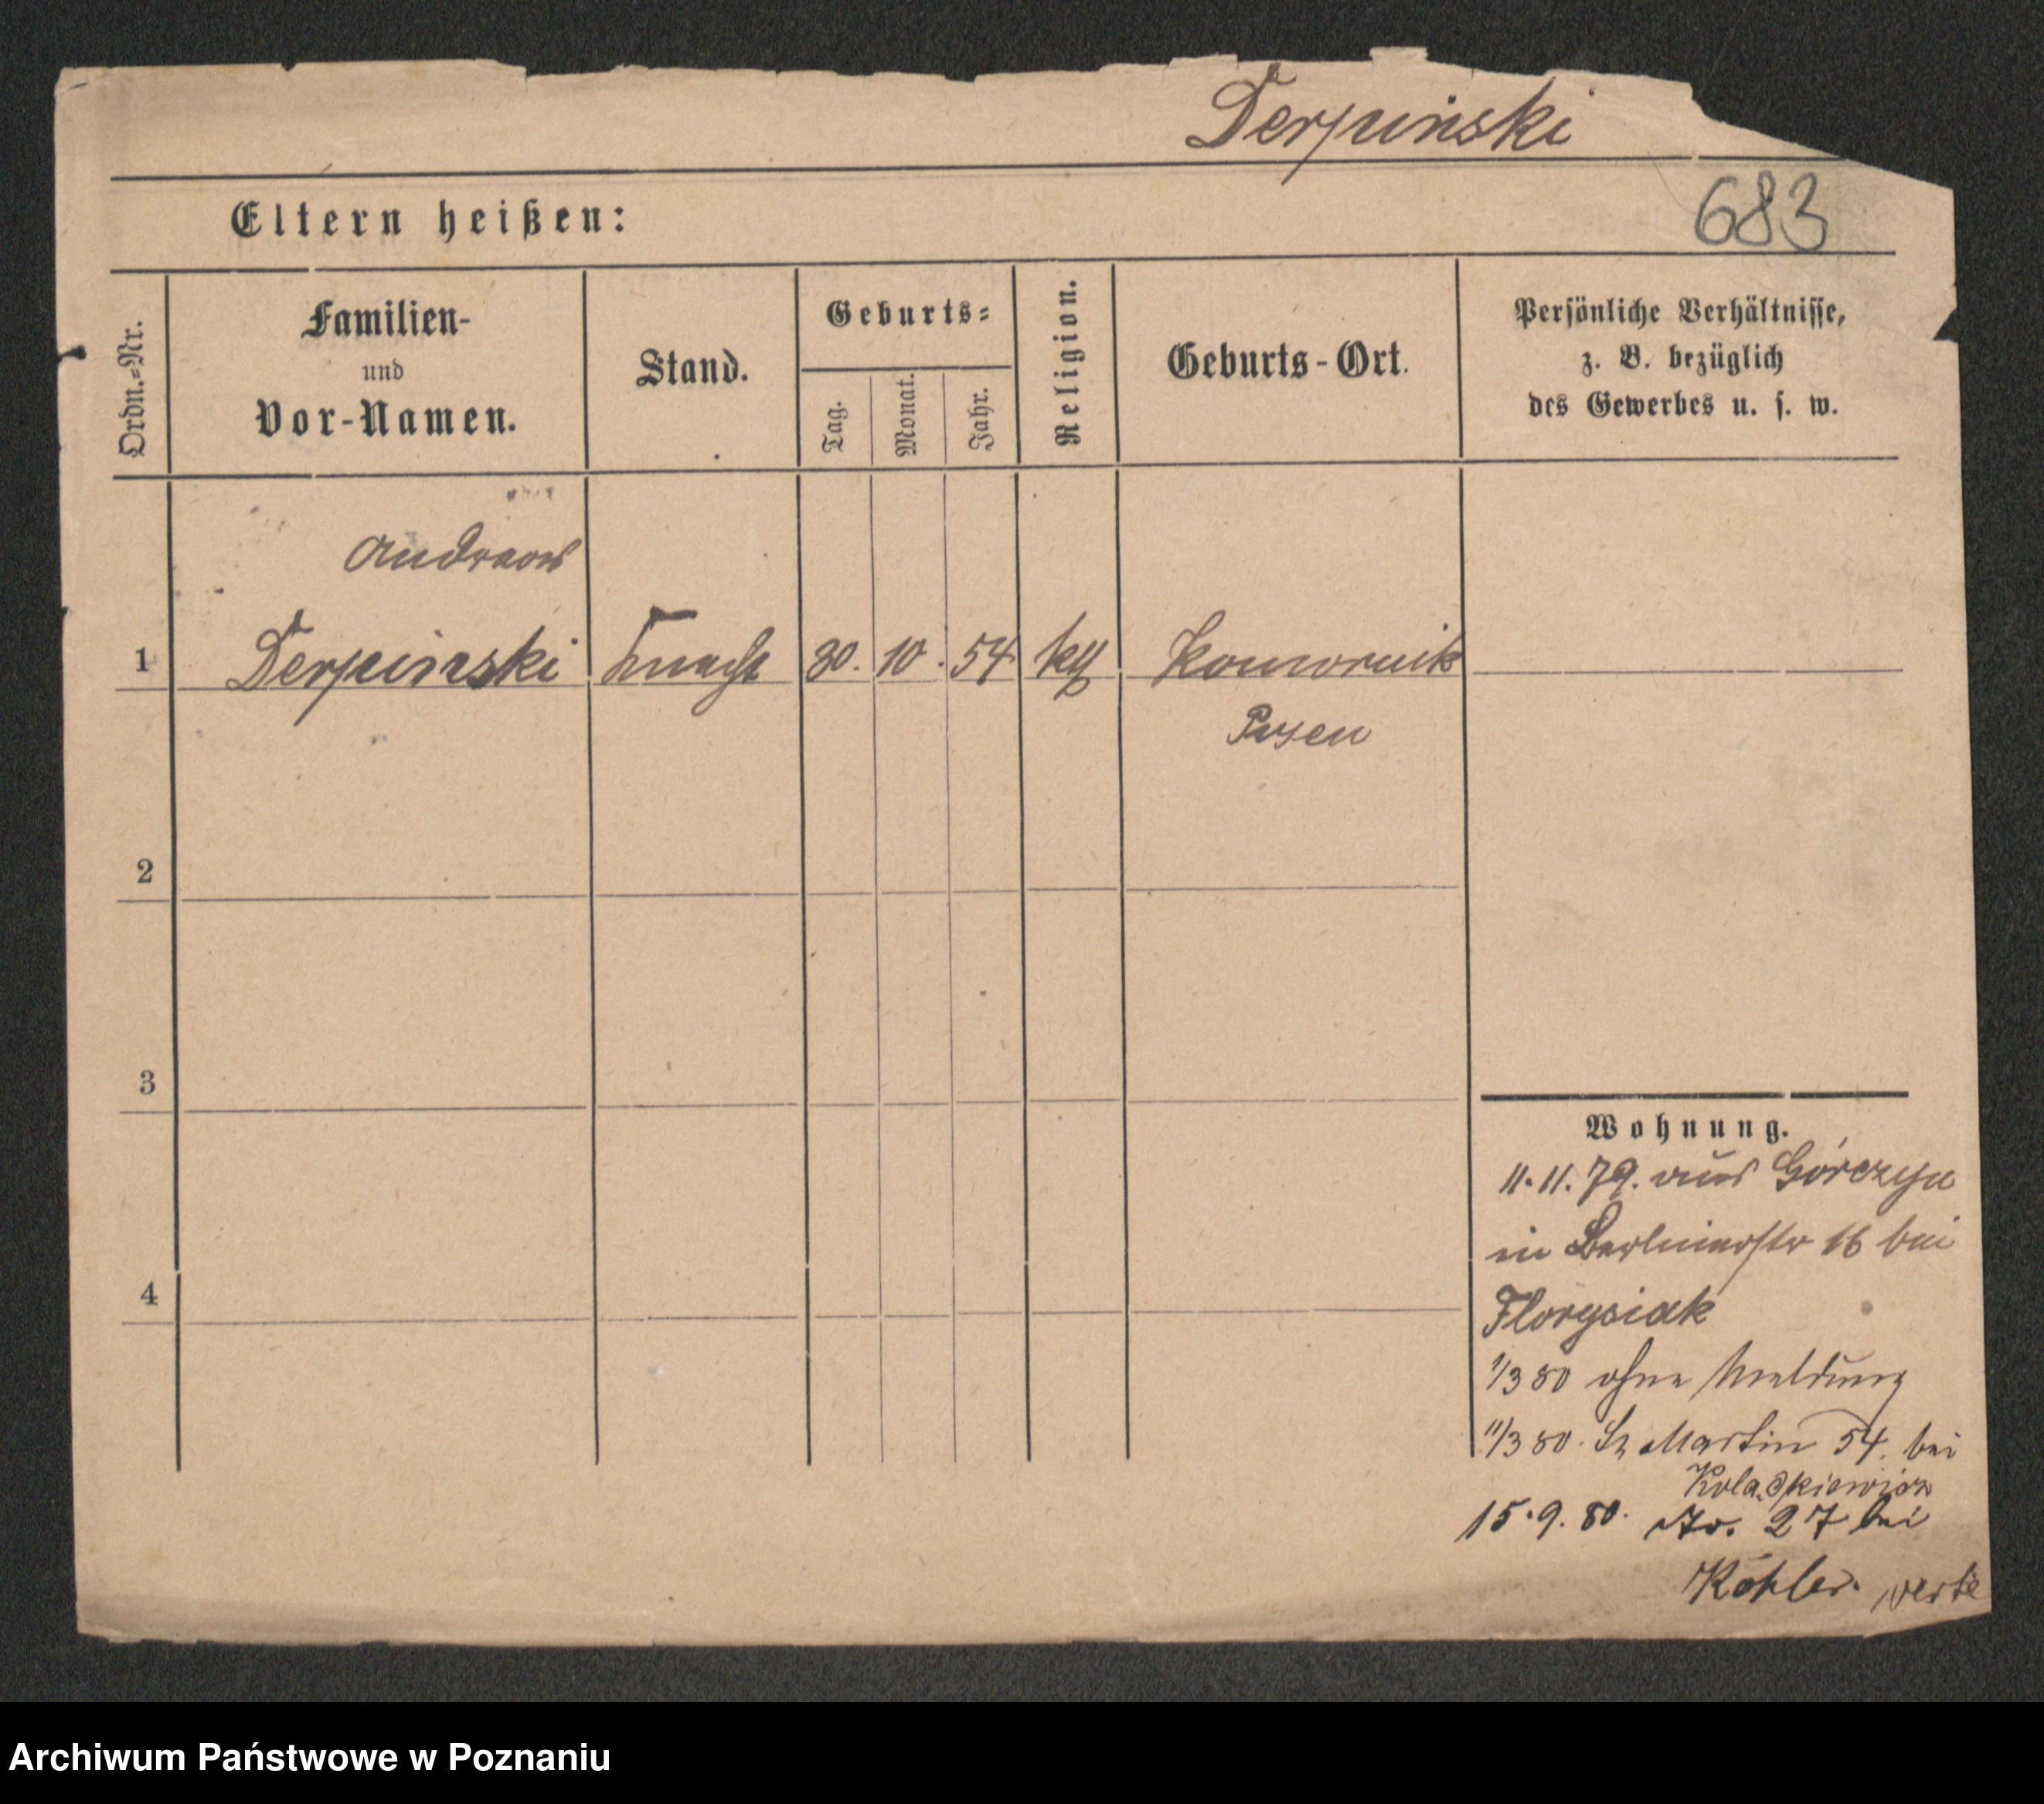 Derpinski
683
Eltern heißen:
Ordn.=Nr.
Familien-
und
Vor-Namen.
Stand.
Geburts=
Tag.
Monat.
Jahr.
Religion.
Geburts-Ort.
Persönliche Verhältnisse,
z. B. bezüglich
des Gewerbes u. s. w.
Andreas
1 Derpinski Knecht 30. 10. 54 kth Komornik
Posen
2
3
4
Wohnung.
11.11.79. aus Górczyn
in Berlinerstr 16 bei
Florysiak
1/3 80 ohne Meldung
11/3 80. St Martin 54. bei
15.9.80. No. 27 bei
Köhler. verte
Archiwum Państwowe w Poznaniu